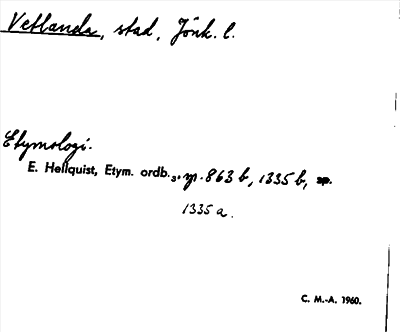 Vetlanda, stad, Jönk. l.
Etymologi.
E. Hellquist, Etym. ordb.3, p. 863 b, 1335 b,
1335 a.
C. M.-A. 1960.